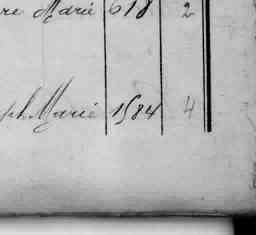 re Marie 618 2
ph Marie 1584 4